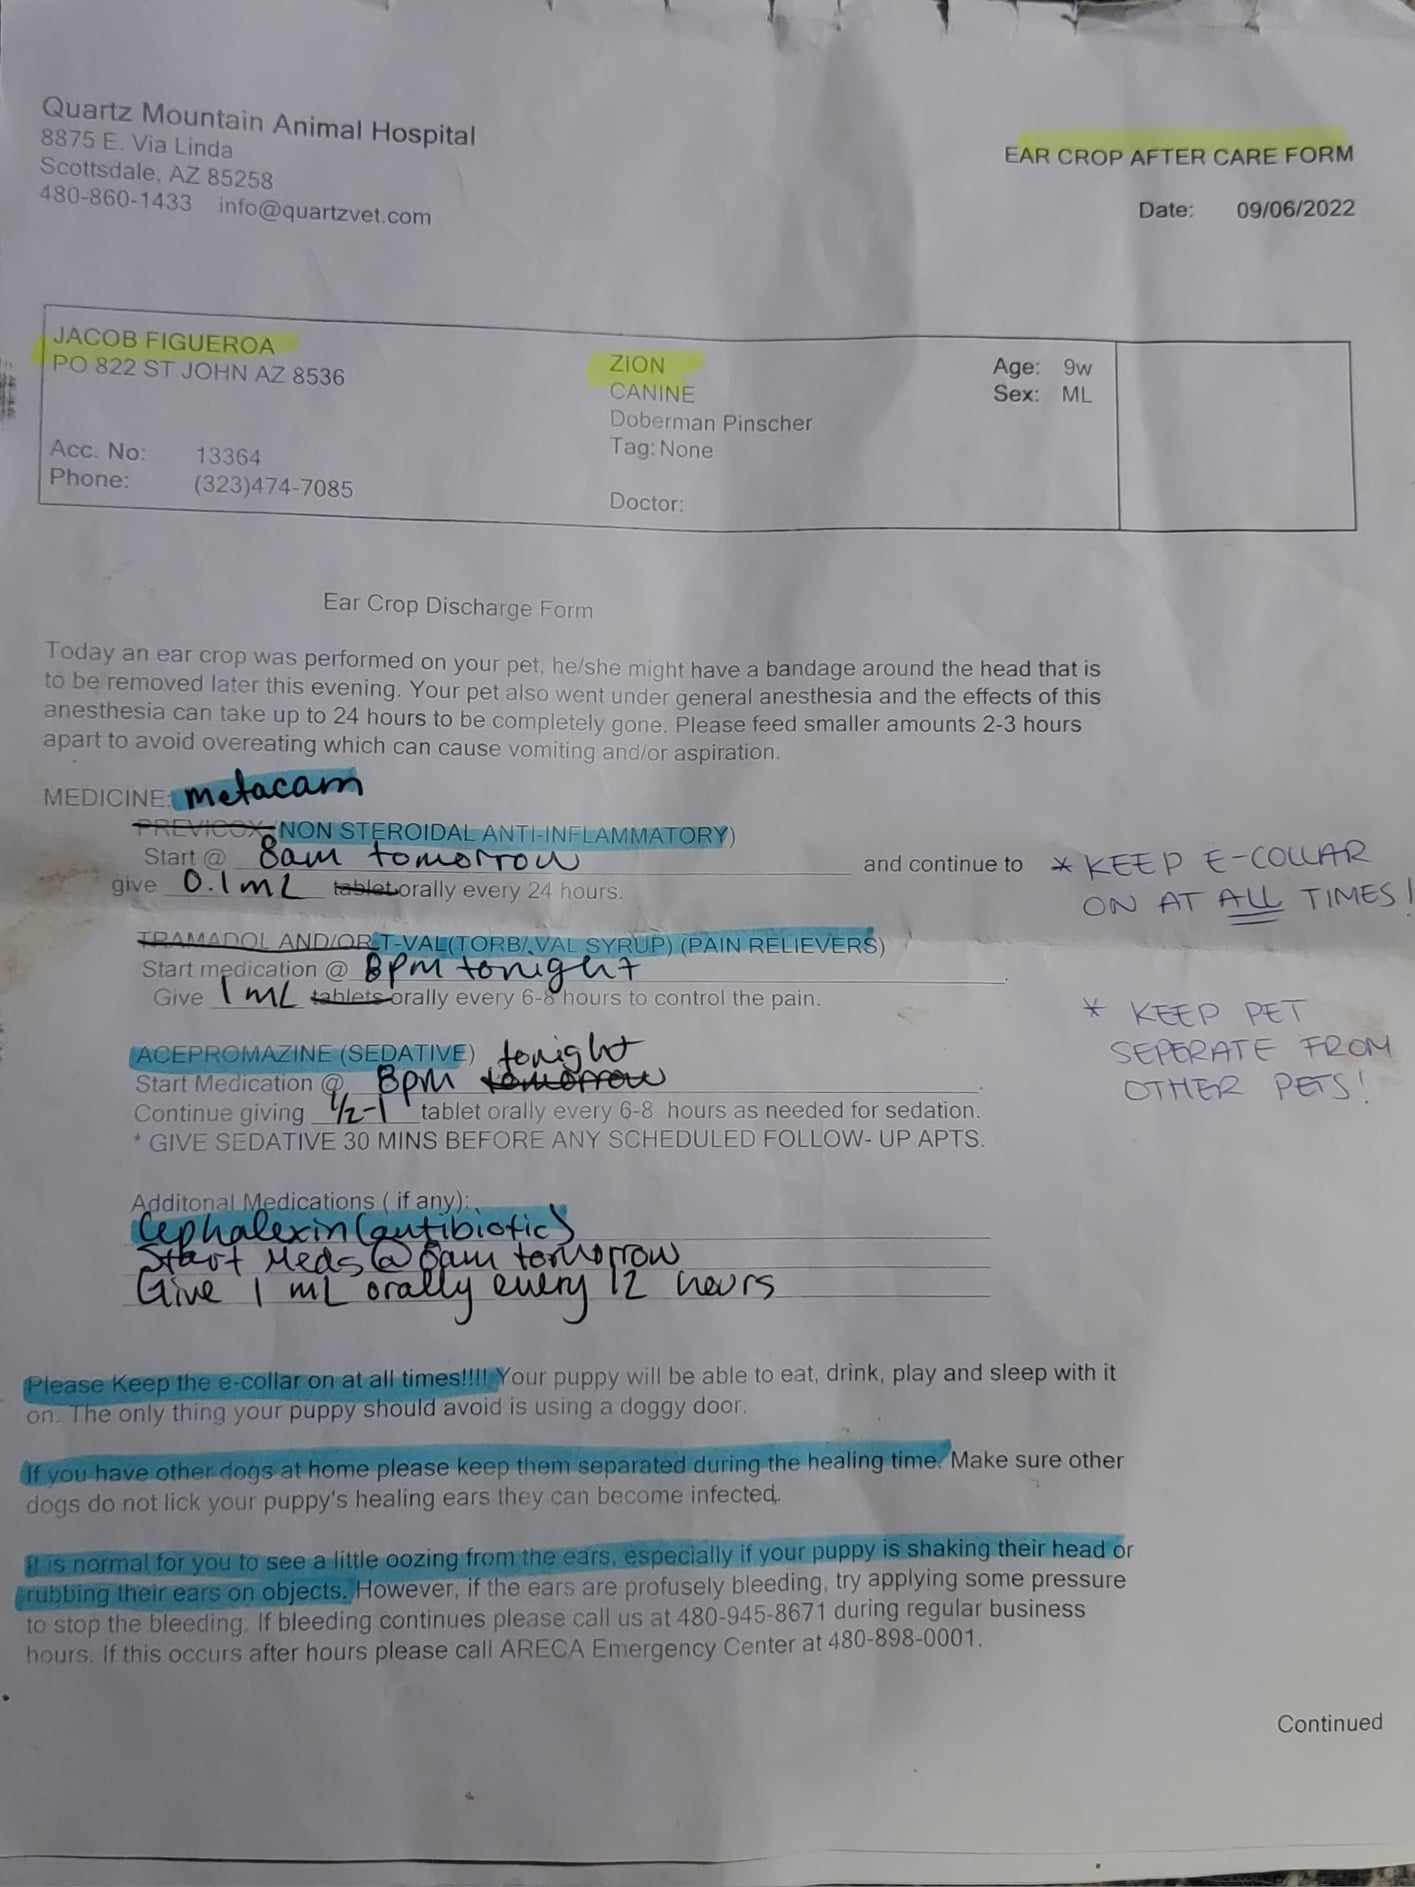 Quartz Mountain Animal Hospital
8875 E. Via Linda
Scottsdale, AZ 85258
480-860-1433 info@quartzvet.com
EAR CROP AFTER CARE FORM
Date: 09/06/2022
JACOB FIGUEROA
PO 822 ST JOHN AZ 8536
Acc. No: 13364
Phone: (323)474-7085
ZION
CANINE
Doberman Pinscher
Tag: None
Doctor:
Age: 9w
Sex: ML
Ear Crop Discharge Form
Today an ear crop was performed on your pet, he/she might have a bandage around the head that is
to be removed later this evening. Your pet also went under general anesthesia and the effects of this
anesthesia can take up to 24 hours to be completely gone. Please feed smaller amounts 2-3 hours
apart to avoid overeating which can cause vomiting and/or aspiration.
MEDICINE: metacam
PREVICOX (NON STEROIDAL ANTI-INFLAMMATORY)
Start @ 8am tomorrow and continue to
give 0.1mL tablet orally every 24 hours.
* KEEP E-COLLAR
ON AT ALL TIMES!
TRAMADOL AND/OR T-VAL(TORB/ VAL SYRUP) (PAIN RELIEVERS)
Start medication @ 8pm tonight.
Give 1 mL tablets orally every 6-8 hours to control the pain.
* KEEP PET
SEPERATE FROM
OTHER PETS!
ACEPROMAZINE (SEDATIVE) tonight
Start Medication @ 8pm tomorrow.
Continue giving 1/2-1 tablet orally every 6-8 hours as needed for sedation.
* GIVE SEDATIVE 30 MINS BEFORE ANY SCHEDULED FOLLOW- UP APTS.
Additonal Medications ( if any):
Cephalexin (antibiotic)
Start Meds @ 8am tomorrow
Give 1 mL orally every 12 hours
Please Keep the e-collar on at all times!!!! Your puppy will be able to eat, drink, play and sleep with it
on. The only thing your puppy should avoid is using a doggy door.
If you have other dogs at home please keep them separated during the healing time. Make sure other
dogs do not lick your puppy's healing ears they can become infected.
It is normal for you to see a little oozing from the ears, especially if your puppy is shaking their head or
rubbing their ears on objects. However, if the ears are profusely bleeding, try applying some pressure
to stop the bleeding. If bleeding continues please call us at 480-945-8671 during regular business
hours. If this occurs after hours please call ARECA Emergency Center at 480-898-0001.
Continued